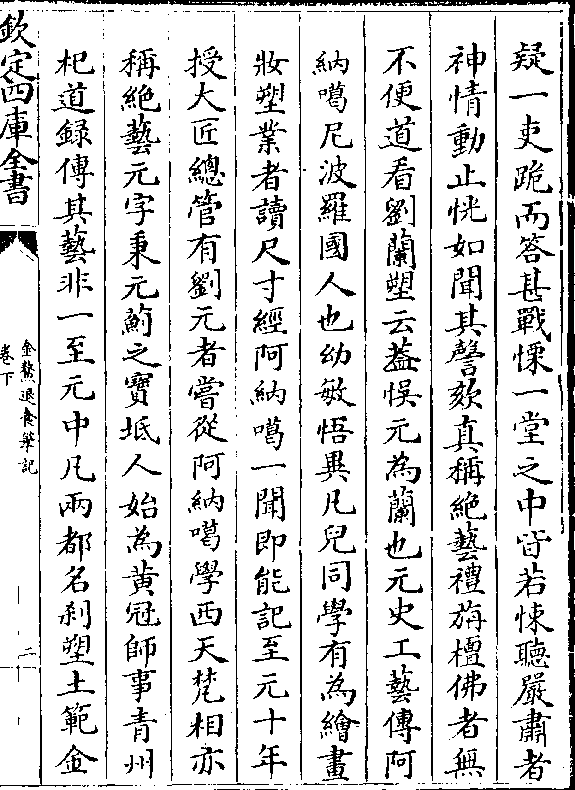 疑一吏跪而答甚戰慄一堂之中皆若悚聽嚴肅者
神情動止恍如聞其謦欬真稱絶藝禮旃檀佛者無
不便道看劉蘭塑云葢悞元為蘭也元史工藝傳阿
納噶尼波羅國人也幼敏悟異凡兒同學有為繪畫
妝塑業者讀尺寸經阿納噶一聞即能記至元十年
授大匠總管有劉元者嘗從阿納噶學西天梵相亦
稱絶藝元字秉元薊之寶坻人始為黄冠師事青州
杞道録傳其藝非一至元中凡兩都名刹塑土範金
欽定四庫全書
金鰲退食筆記
卷下
二